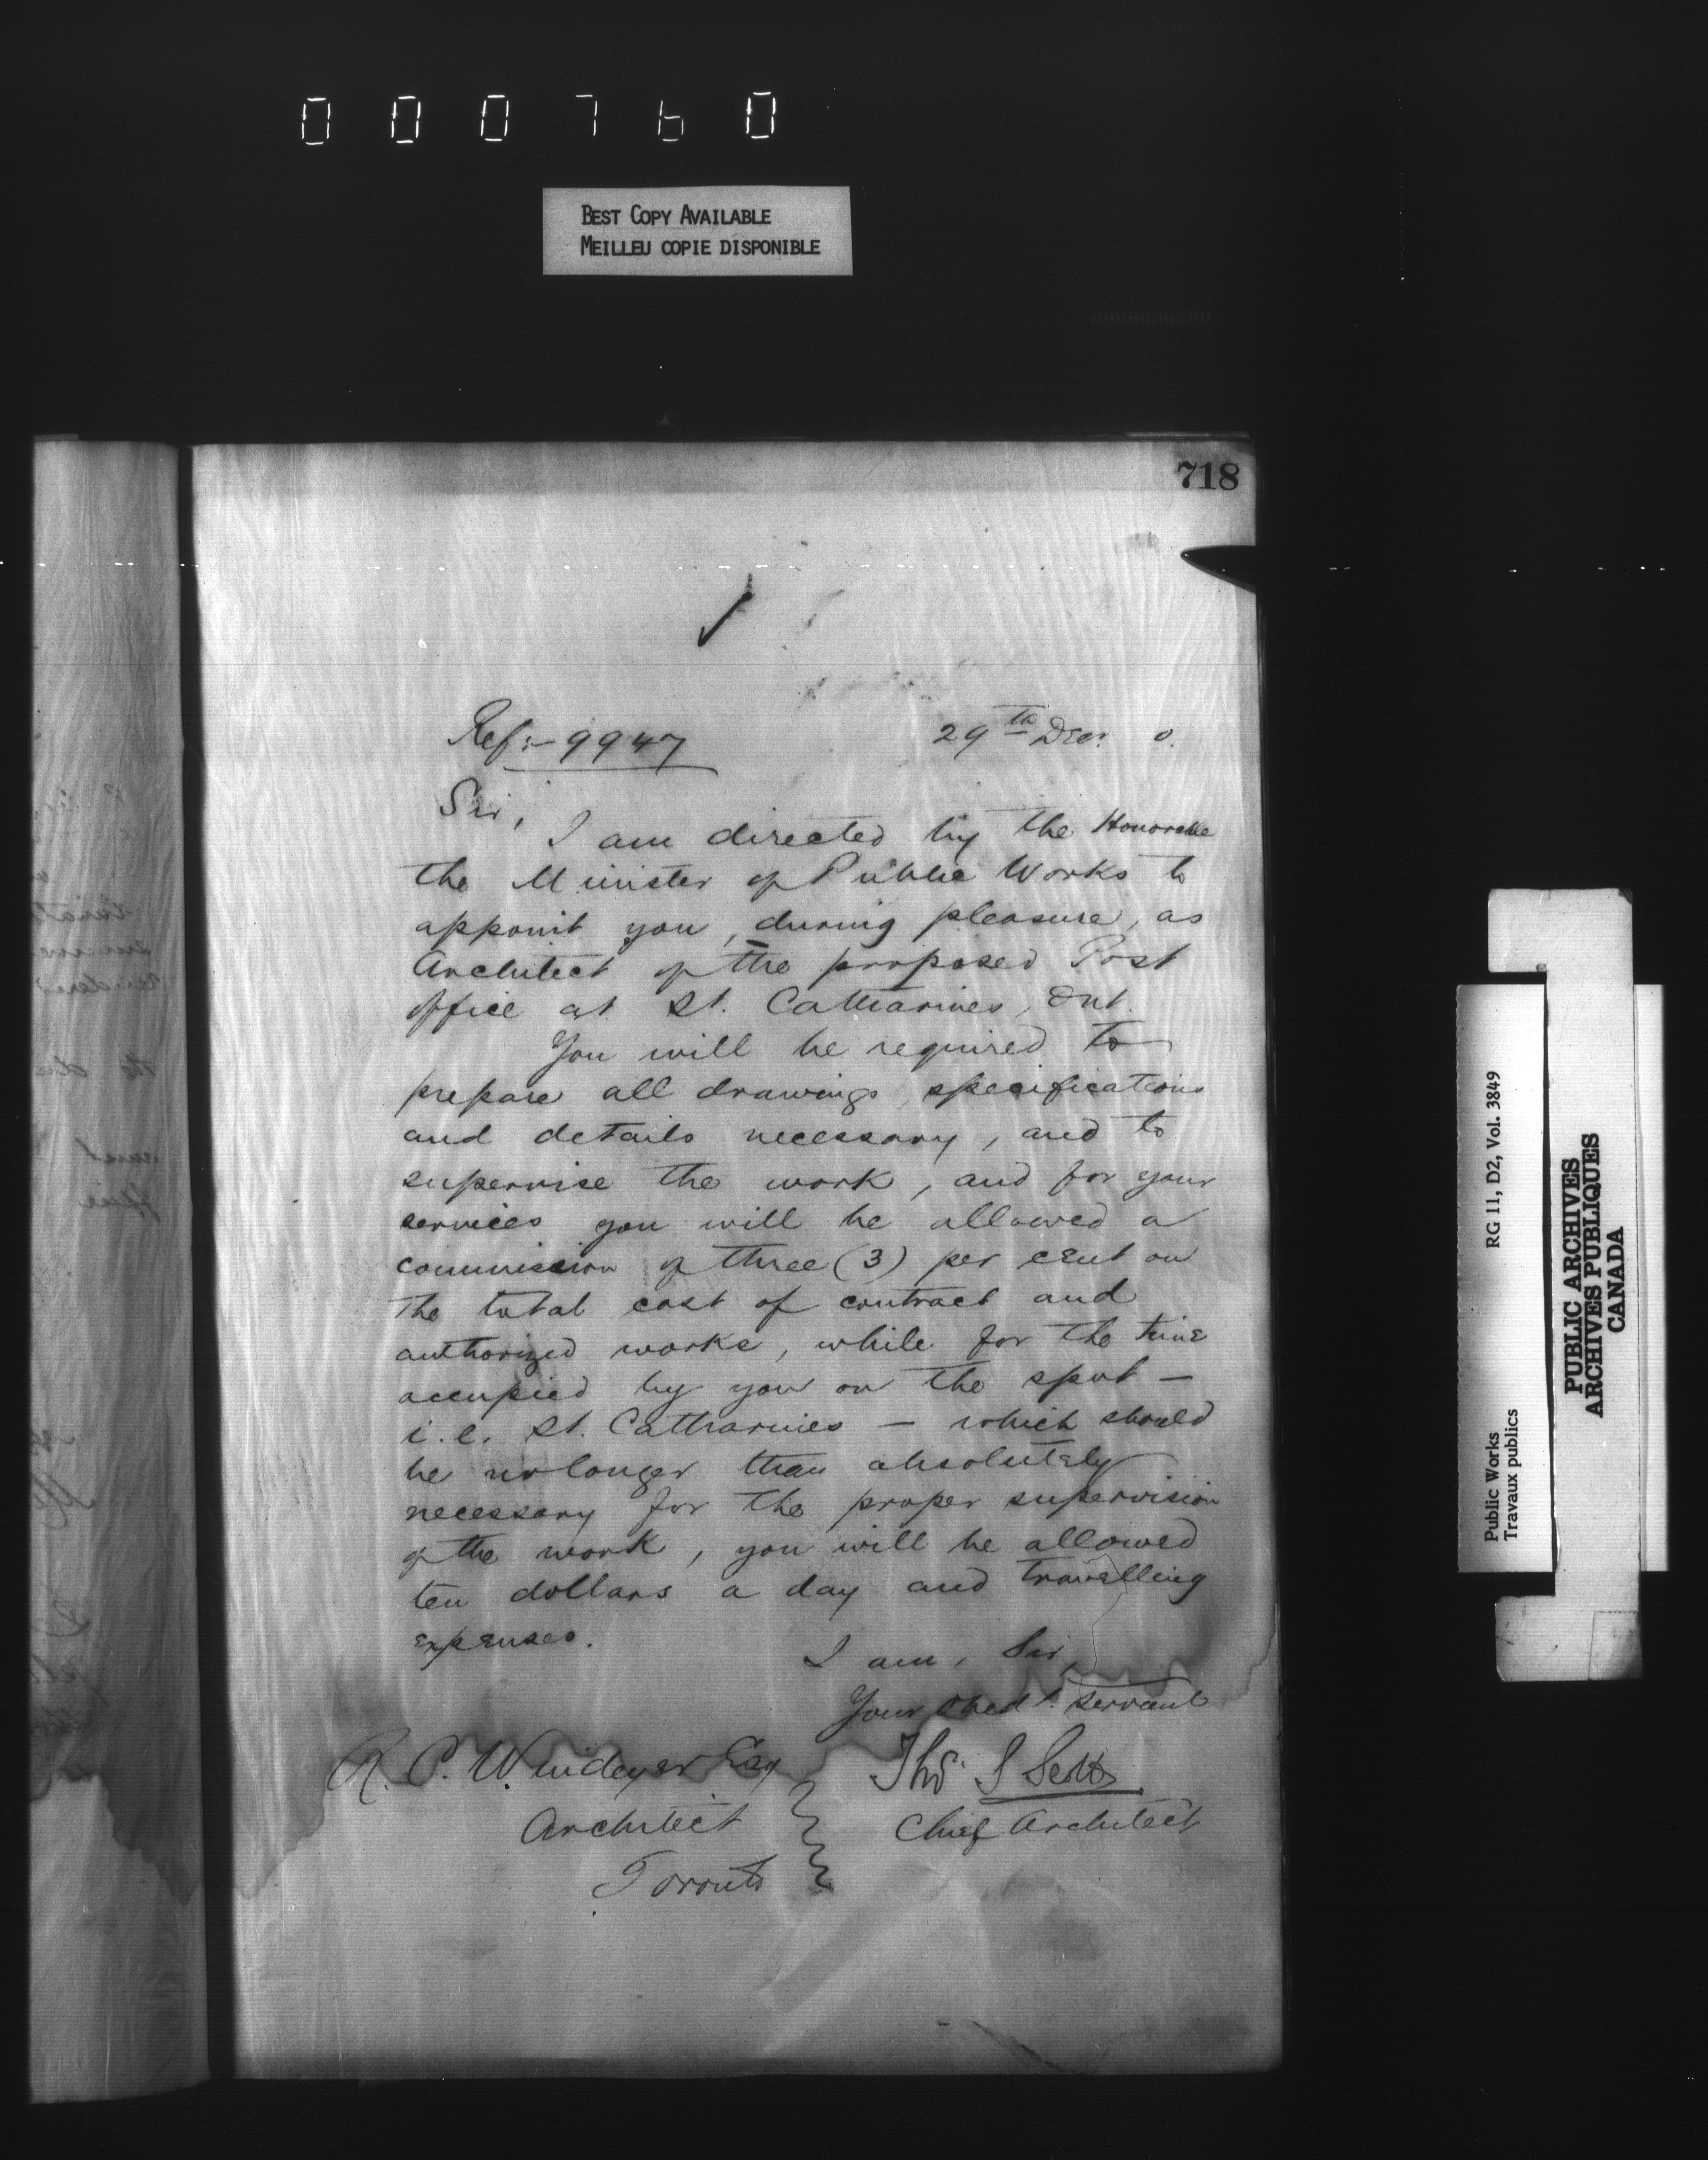 000760
BEST COPY AVAILABLE
MEILLEU COPIE DISPONIBLE
718
Ref:- 9947
29th Decr. 0.
Sir,
I am directed by the Honorable
the Minister of Public Works to
appoint you, during pleasure, as
Architect of the proposed Post
Office at St. Catharines, Ont.
You will be required to
prepare all drawings, specifications
and details necessary, and to
supervise the work, and for your
services you will be allowed a
commission of three (3) per cent on
the total cost of contract and
authorized works, while for the time
occupied by you on the spot —
i.e. St. Catharines — which should
be no longer than absolutely
necessary for the proper supervision
of the work, you will be allowed
ten dollars a day and travelling
expenses.
I am, Sir,
Your obedt. servant
Thos S Scott
Chief Architect
R. C. Windeyer Esq
Architect
Toronto
Public Works
Travaux publics
RG 11, D2, Vol. 3849
PUBLIC ARCHIVES
ARCHIVES PUBLIQUES
CANADA